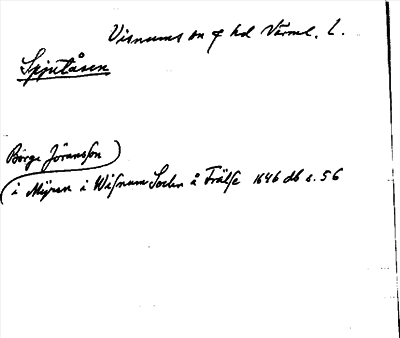 Visnums sn o hd Värml. L.
Spjutåsen
Börge Jöransson
i Myren i Wisnum Sochn å Frälse 1646 db s. 56